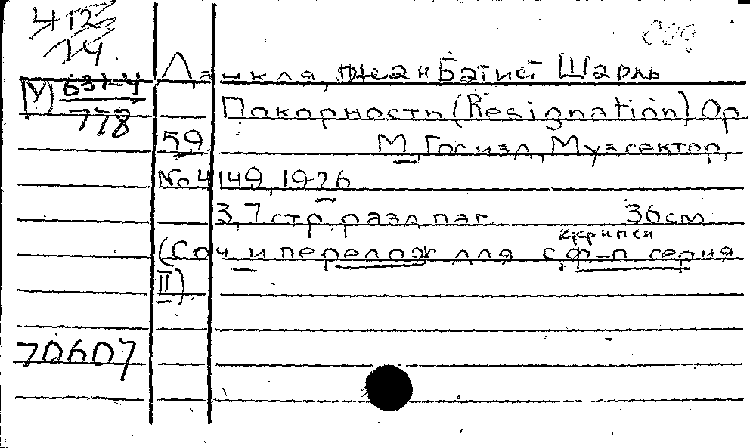 412
14
Данкля, Жан Батист Шарль
М 631-4
778
Покорность (Resignation) Ор
59 М, Госизд, Музсектор,
No 4149, 1926
3,7 стр. разд паг 36см
скрипки
(Соч и перелож для с ф-п серия
II)
70607